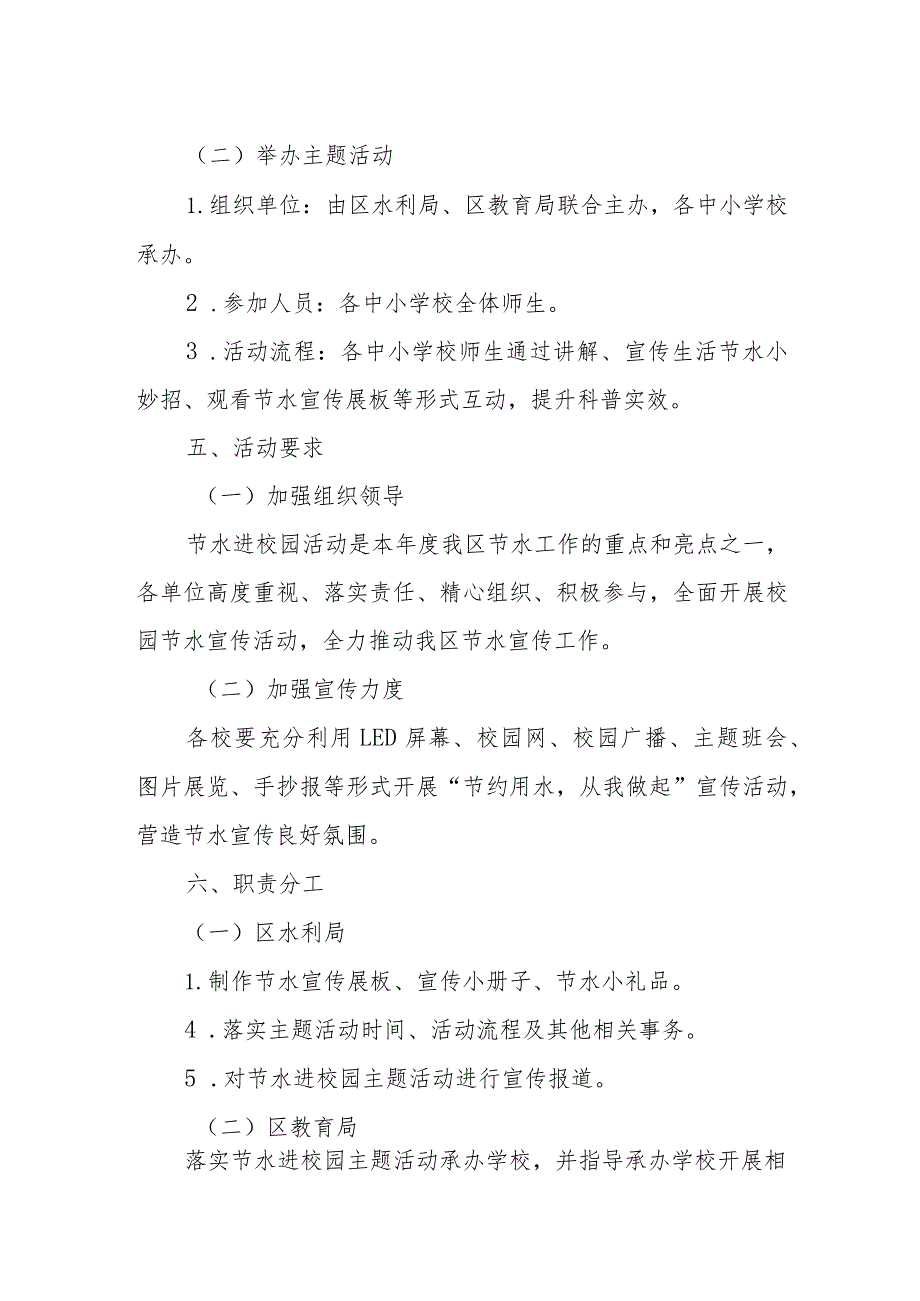 （二）举办主题活动
1.组织单位：由区水利局、区教育局联合主办，各中小学校
承办。
2 .参加人员：各中小学校全体师生。
3 .活动流程：各中小学校师生通过讲解、宣传生活节水小
妙招、观看节水宣传展板等形式互动，提升科普实效。
五、活动要求
（一）加强组织领导
节水进校园活动是本年度我区节水工作的重点和亮点之一，
各单位高度重视、落实责任、精心组织、积极参与，全面开展校
园节水宣传活动，全力推动我区节水宣传工作。
（二）加强宣传力度
各校要充分利用 LED 屏幕、校园网、校园广播、主题班会、
图片展览、手抄报等形式开展“节约用水，从我做起”宣传活动，
营造节水宣传良好氛围。
六、职责分工
（一）区水利局
1.制作节水宣传展板、宣传小册子、节水小礼品。
4 .落实主题活动时间、活动流程及其他相关事务。
5 .对节水进校园主题活动进行宣传报道。
（二）区教育局
落实节水进校园主题活动承办学校，并指导承办学校开展相